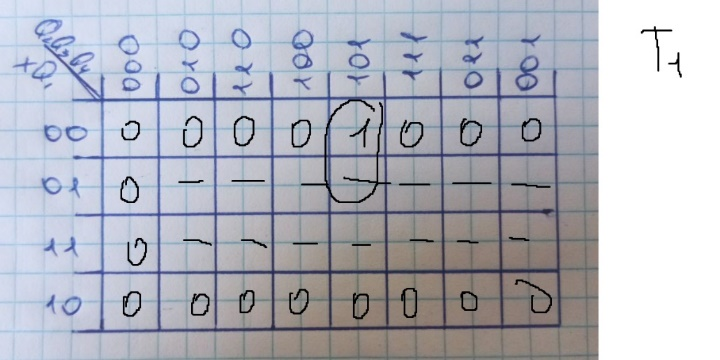 T₁
Q₂Q₃Q₄
xQ₁
000 010 110 100 101 111 011 001
00 0 0 0 0 1 0 0 0
01 0 — — — — — — —
11 0 — — — — — — —
10 0 0 0 0 0 0 0 0